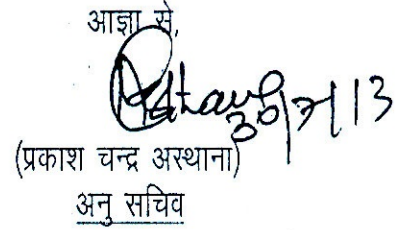 आज्ञा से,
30/7/13
(प्रकाश चन्द्र अस्थाना)
अनु सचिव